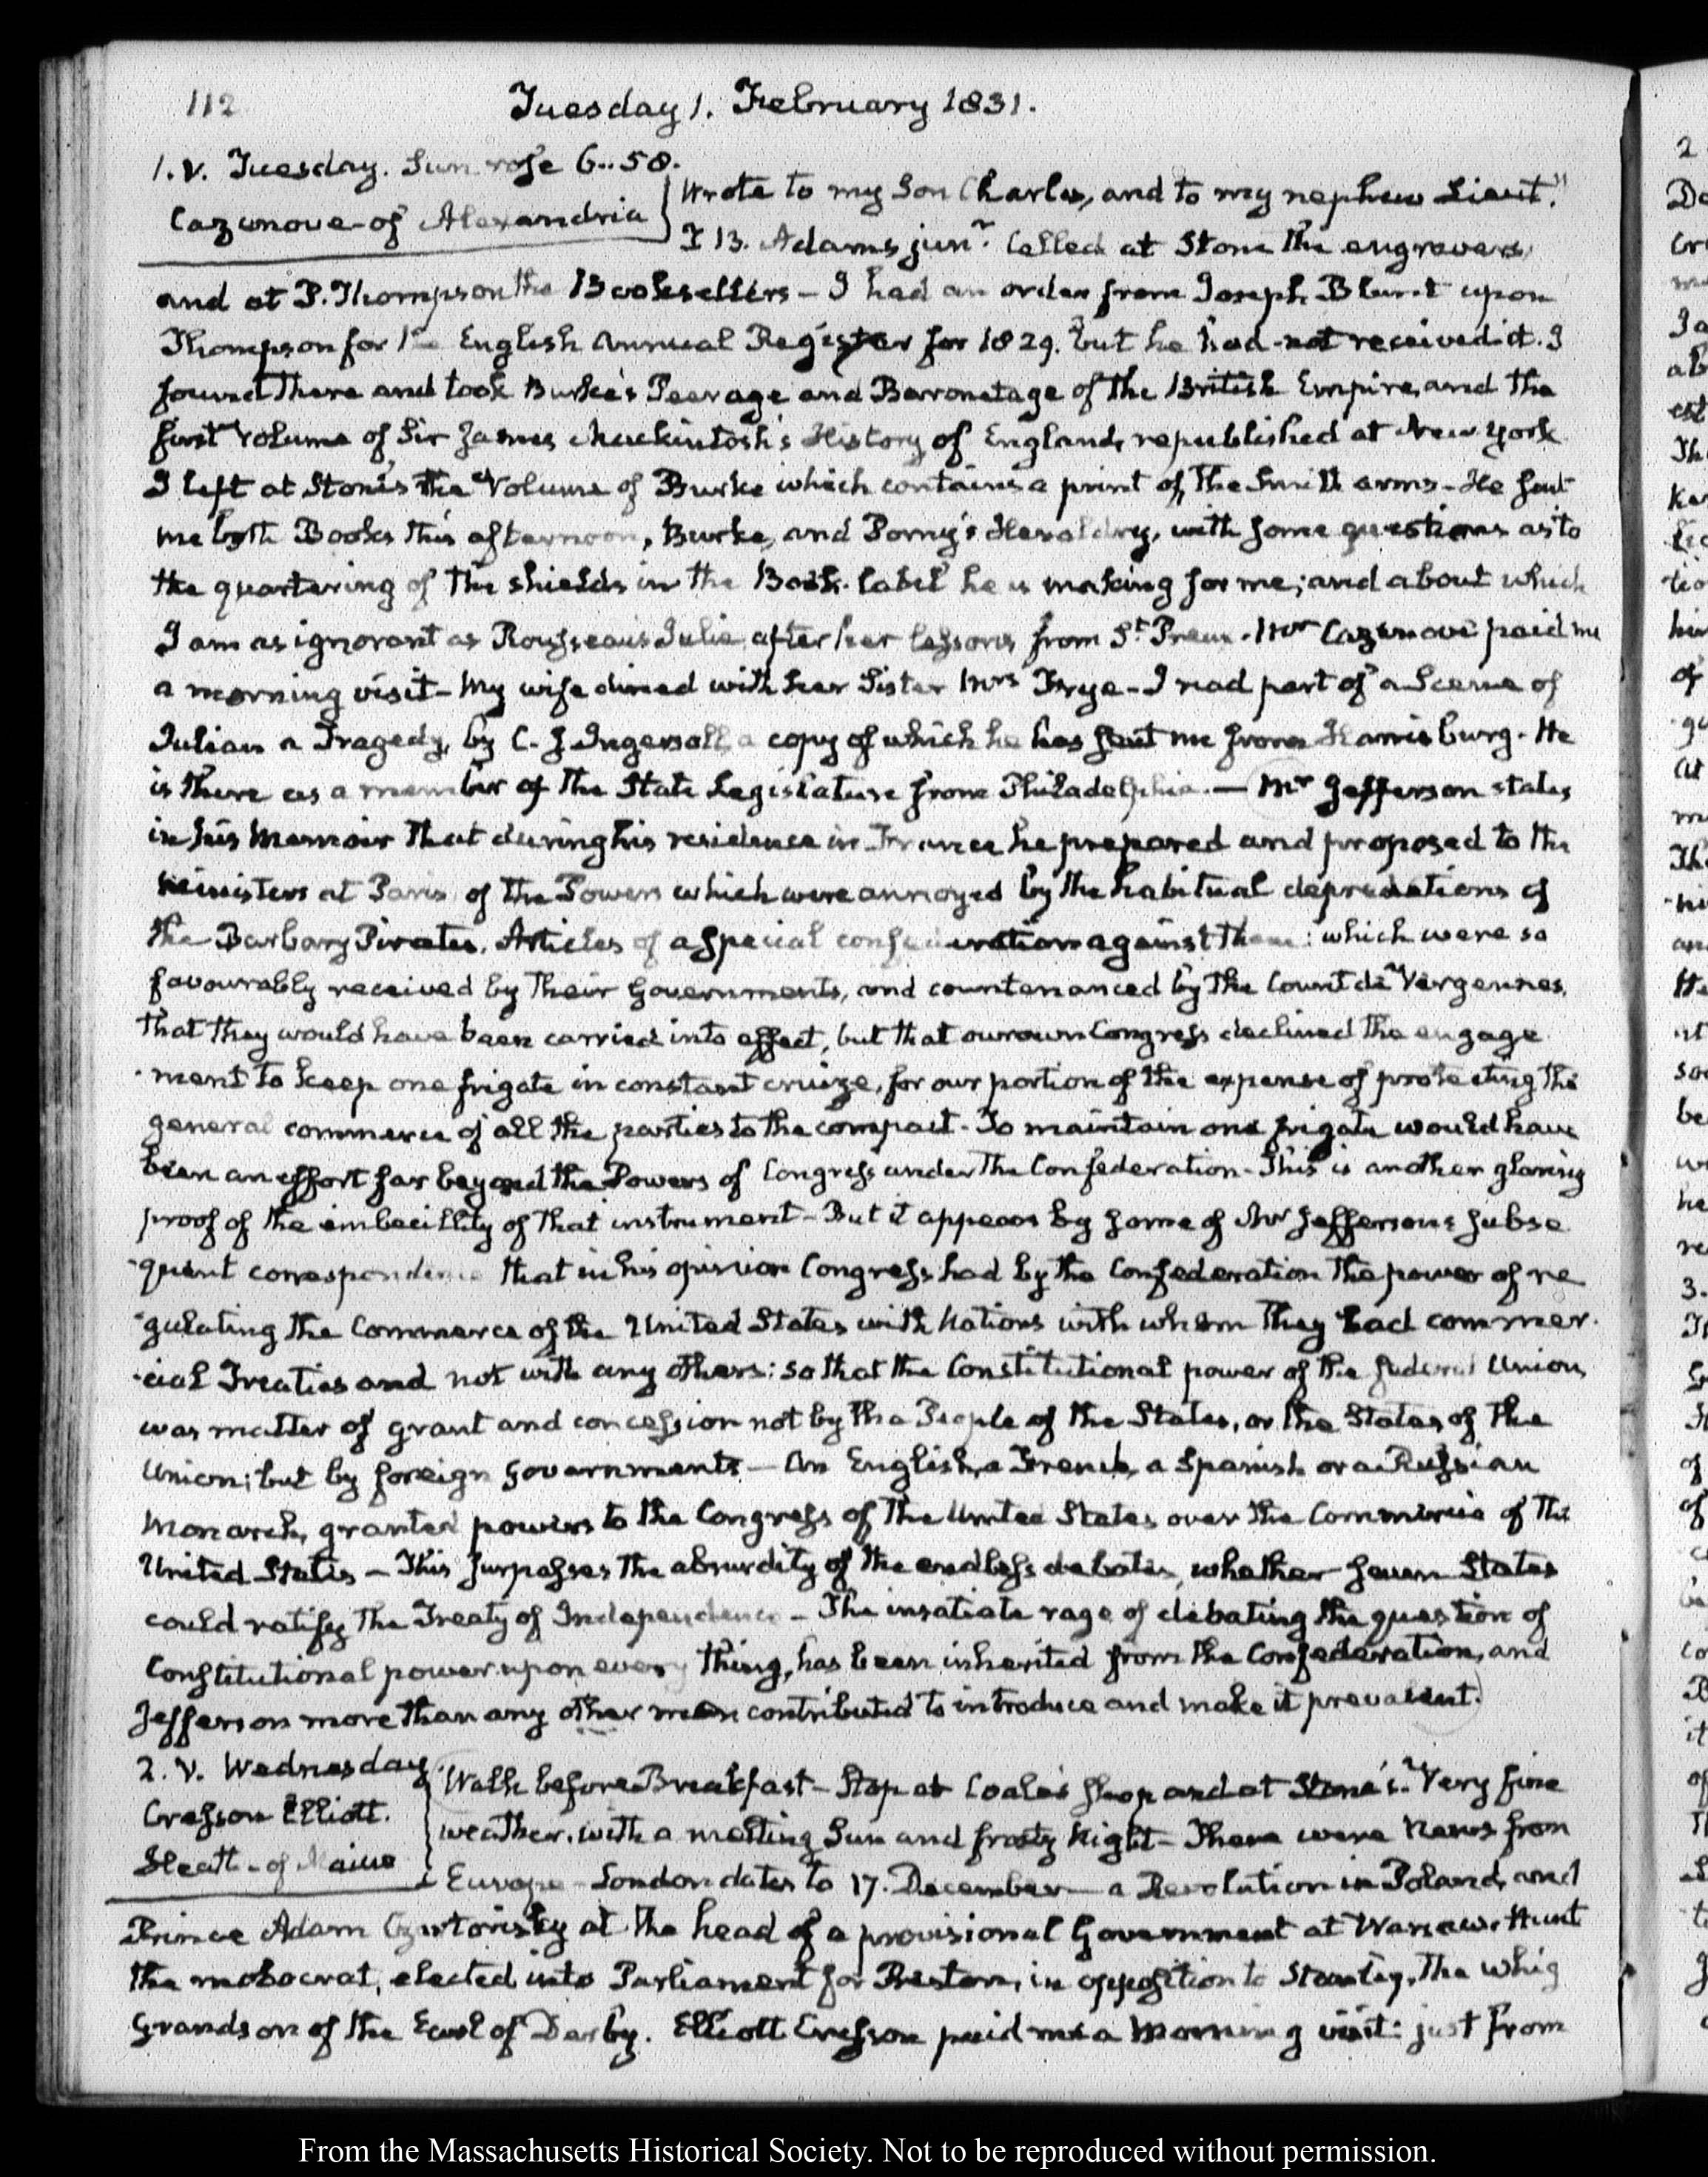 112
Tuesday 1. February 1831.
1. V. Tuesday. Sun rose 6..58.
Cazenove-of Alexandria
Wrote to my Son Charles, and to my nephew Lieut.t
T B. Adams junr. Called at Stone the engravers
and at P. Thompson the Booksellers – I had an order from Joseph Blunt upon
Thompson for the English Annual Register for 1829. but he had not received it. I
found there and took Burke's Peerage and Barronetage of the British Empire, and the
first volume of Sir James Mackintosh's History of England, republished at New York
I left at Stone's the volume of Burke which contains a print of, the Smith arms – He sent
me both Books this afternoon, Burke, and Porny's Heraldry, with some questions as to
the quartering of the shields in the Book-label he is making for me; and about which
I am as ignorant as Rousseau's Julie, after her lessons from St. Preux. Mr Cazenove paid me
a morning visit – My wife dined with her Sister Mrs Frye – I read part of a Scene of
Julian a Tragedy, by C. J. Ingersoll, a copy of which he has sent me from Harrisburg. He
is there as a member of the State Legislature from Philadelphia. — Mr Jefferson states
in his Memoir that during his residence in France he prepared and proposed to the
Ministers at Paris, of the Powers which were annoyed by the habitual depredations of
the Barbary Pirates, Articles of a special confederation against them: which were so
favourably received by their Governments, and countenanced by the Count de Vergennes,
that they would have been carried into effect, but that our own Congress declined the engage
-ment to keep one frigate in constant cruize, for our portion of the expense of protecting the
general commerce of all the parties to the compact. To maintain one frigate would have
been an effort far beyond the Powers of Congress under the Confederation – This is another glaring
proof of the imbecillity of that instrument – But it appears by some of Mr Jefferson's subse
-quent correspondence that in his opinion Congress had by the Confederation the power of re
-gulating the Commerce of the United States with Nations with whom they had commer
-cial Treaties and not with any others: so that the Constitutional power of the federal Union,
was matter of grant and concession not by the People of the States, or the States of the
Union; but by foreign Governments – An English, a French, a Spanish or a Russian
Monarch, granted powers to the Congress of the United States over the Commerce of the
United States – This surpasses the absurdity of the endless debates, whether seven States
could ratify the Treaty of Independence – The insatiate rage of debating the question of
Constitutional power upon every thing, has been inherited from the Confederation, and
Jefferson more than any other man contributed to introduce and make it prevalent.
2. V. Wednesday
Cresson Elliott.
Heath - of Maine
Walk before Breakfast – Stop at Coale's shop and at Stone's. Very fine
weather, with a melting Sun and frosty Night – There were News from
Europe – London dates to 17. December – a Revolution in Poland, and
Prince Adam Czartorisky at the head of a provisional Government at Warsaw. Hunt
the mobocrat, elected into Parliament for Preston, in opposition to Stanley, the whig
Grandson of the Earl of Darby. Elliott Cresson paid me a Morning visit: just from
From the Massachusetts Historical Society. Not to be reproduced without permission.